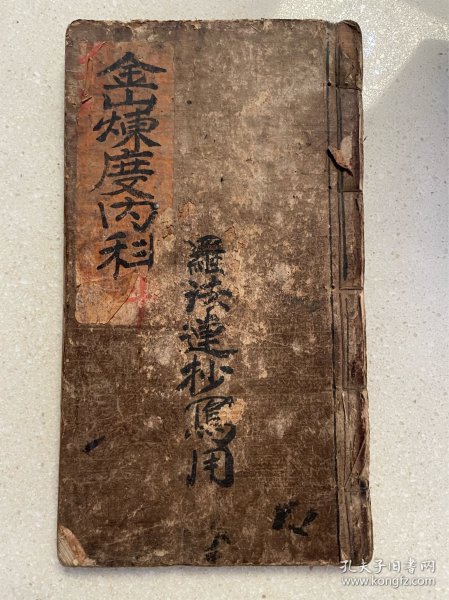 金山煉度内科
羅法連抄寫用
孔夫子旧书网
www.kongfz.com